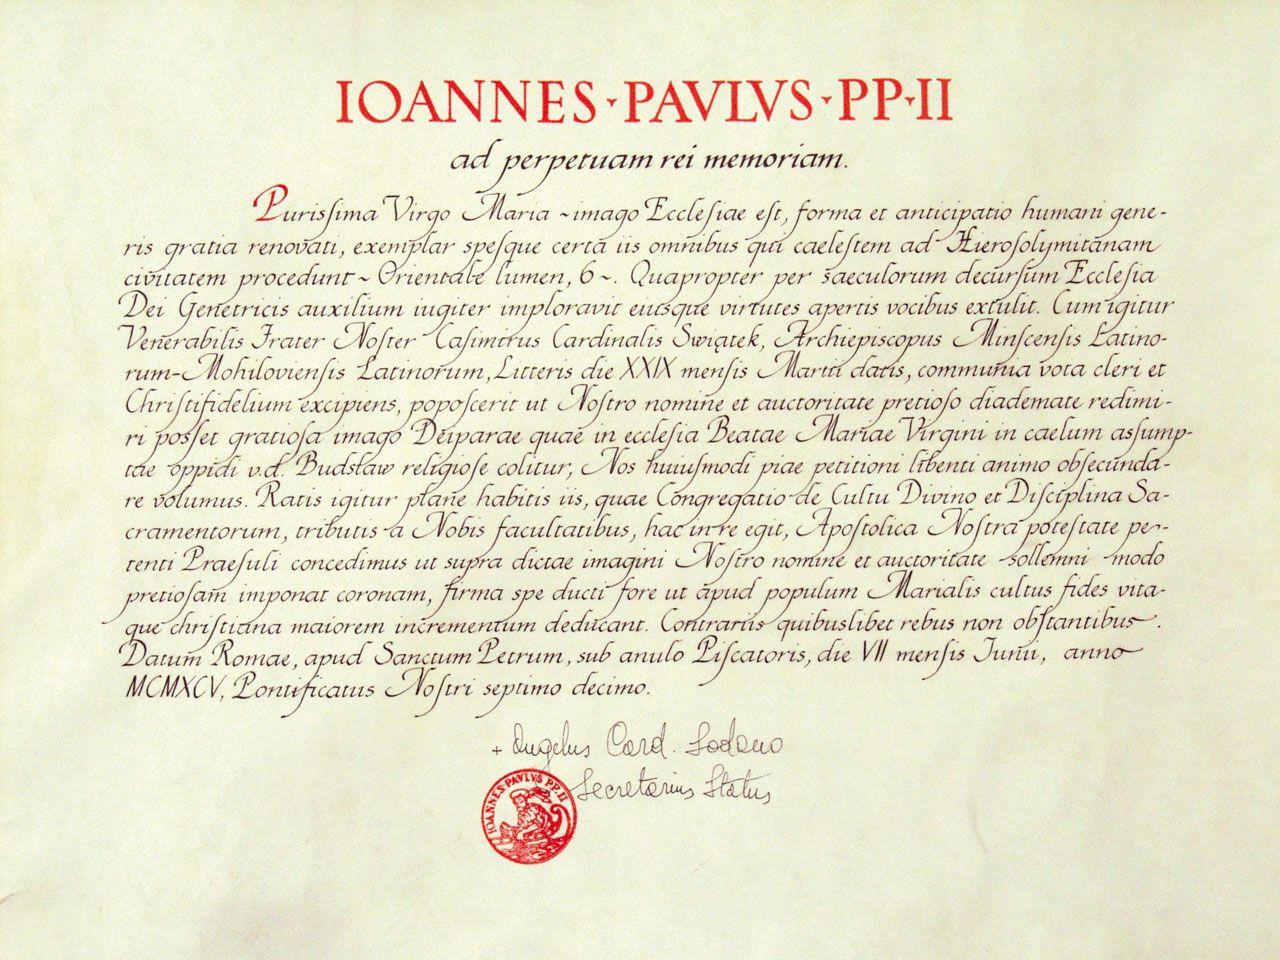 IOANNES · PAVLVS · PP · II
ad perpetuam rei memoriam.
Purissima Virgo Maria ~ imago Ecclesiae est, forma et anticipatio humani gene-
ris gratia renovati, exemplar spesque certa iis omnibus qui caelestem ad Hierosolymitanam
civitatem procedunt ~ Orientale lumen, 6 ~. Quapropter per saeculorum decursum Ecclesia
Dei Genetricis auxilium iugiter imploravit eiusque virtutes apertis vocibus extulit. Cum igitur
Venerabilis Frater Noster Casimirus Cardinalis Swiątek, Archiepiscopus Minscensis Latino-
rum-Mohiloviensis Latinorum, Litteris die XXIX mensis Martii datis, communia vota cleri et
Christifidelium excipiens, poposcerit ut Nostro nomine et auctoritate pretioso diademate redimi-
ri posset gratiosa imago Deiparae quae in ecclesia Beatae Mariae Virgini in caelum assump-
tae oppidi v.d. Budsław religiose colitur; Nos huiusmodi piae petitioni libenti animo obsecunda-
re volumus. Ratis igitur plane habitis iis, quae Congregatio de Cultu Divino et Disciplina Sa-
cramentorum, tributis a Nobis facultatibus, hac in re egit, Apostolica Nostra potestate pe-
tenti Praesuli concedimus ut supra dictae imagini Nostro nomine et auctoritate sollemni modo
pretiosam imponat coronam, firma spe ducti fore ut apud populum Marialis cultus fides vita-
que christiana maiorem incrementum deducant. Contrariis quibuslibet rebus non obstantibus.
Datum Romae, apud Sanctum Petrum, sub anulo Piscatoris, die VII mensis Iunii, anno
MCMXCV, Pontificatus Nostri septimo decimo.
+ Angelus Card. Sodano
Secretarius Status
IOANNES PAVLVS PP. II